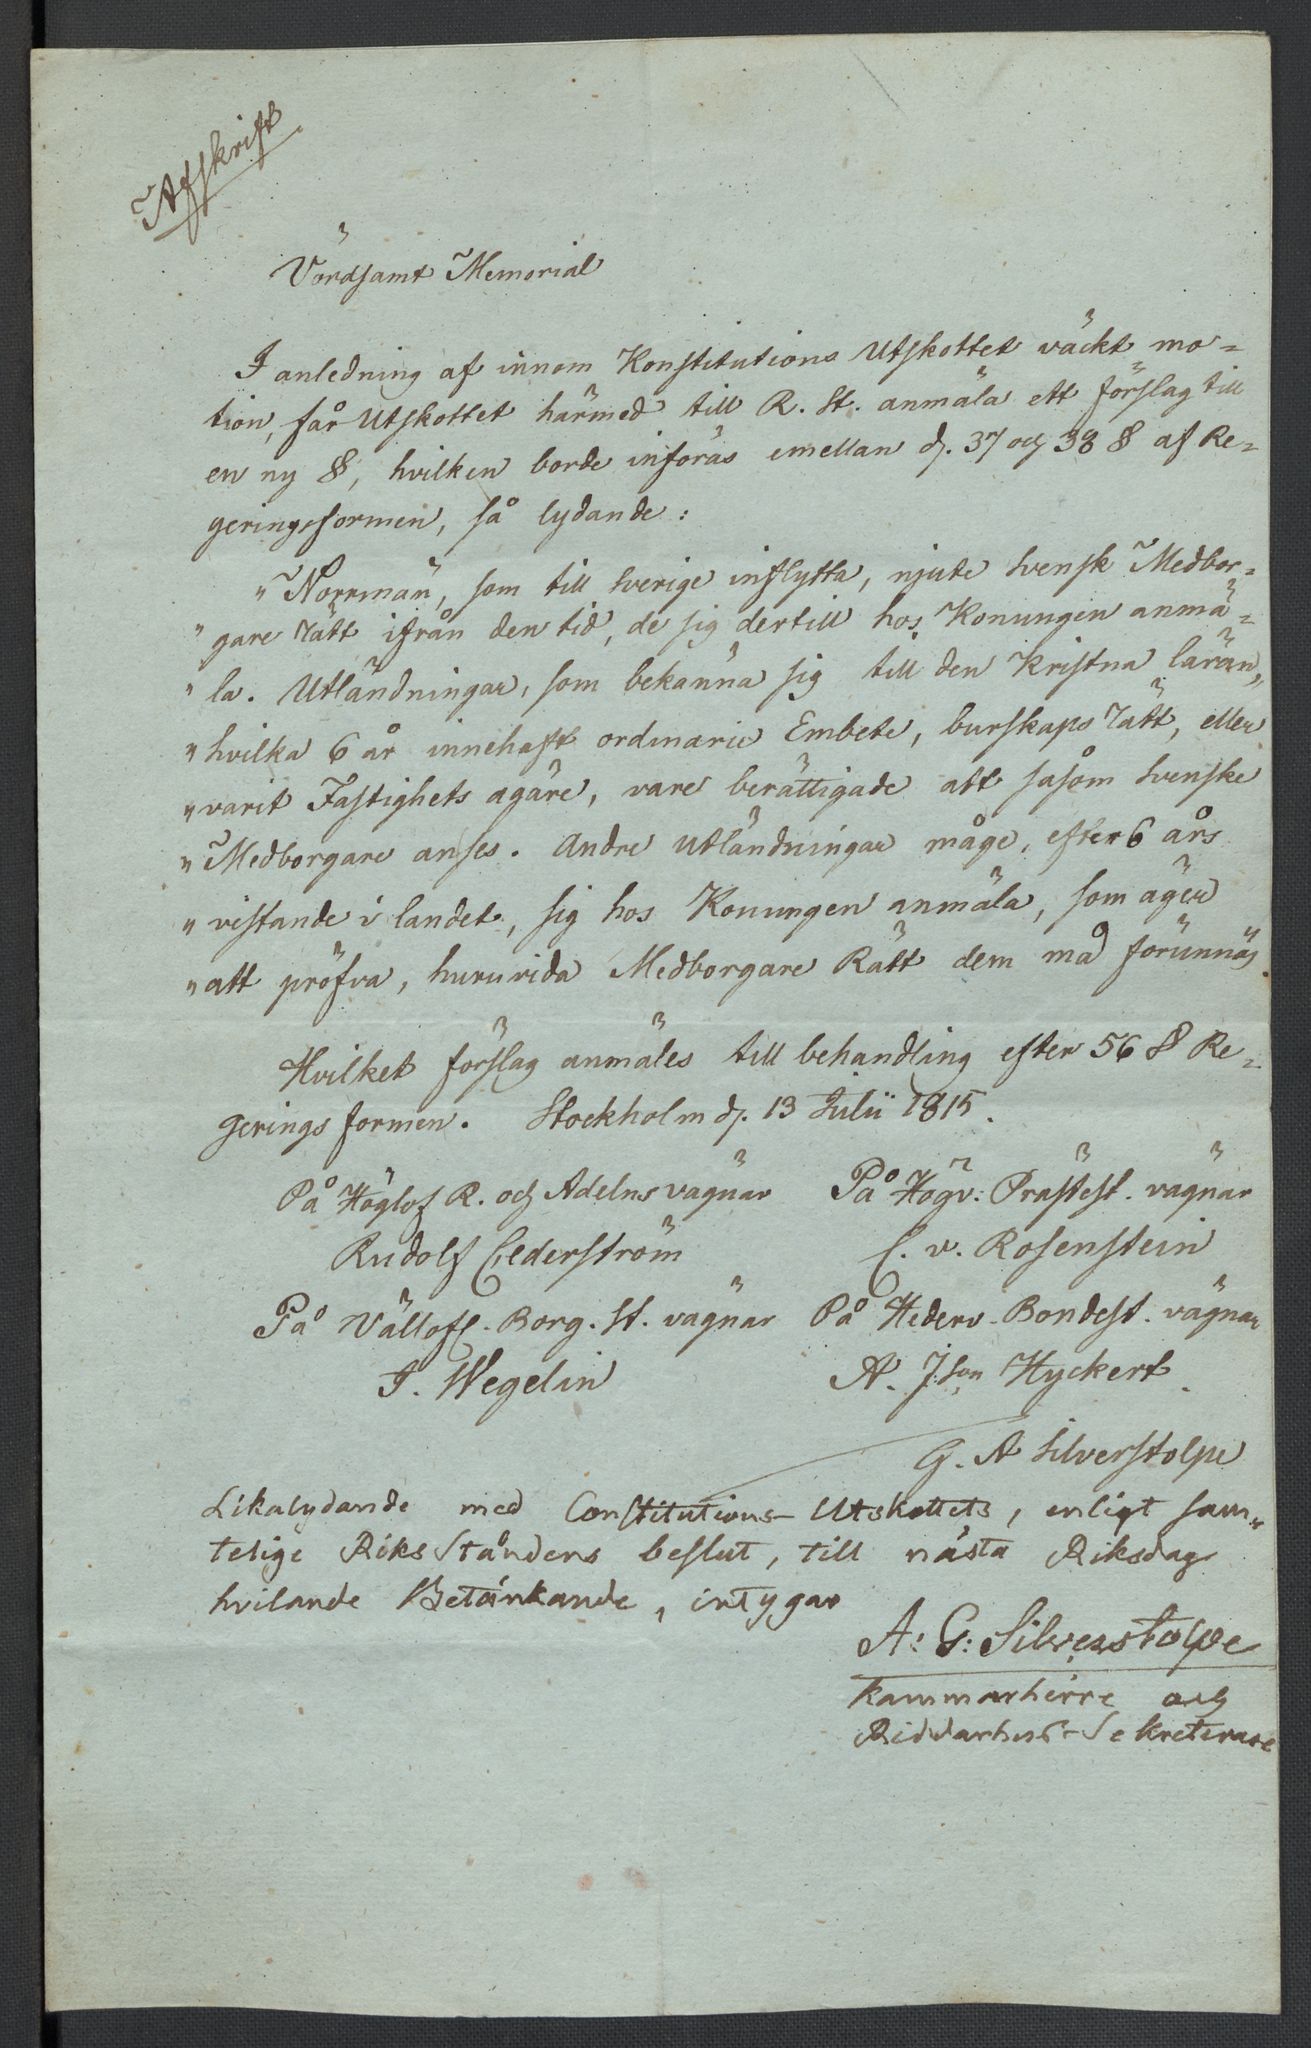 Afskrift
Vördsamt Memorial
I anledning af innom Konstitutions Utskottet väckt mo=
tion, får Utskottet härmed till R. St. anmäla ett förslag till
en ny §, hvilken borde införas emellan d. 37 och 38 § af Re=
geringsformen, så lydande:
"Norrmän, som till Sverige inflytta, njute Svensk Medbor=
"gare Rätt ifrån den tid, de sig dertill hos Konungen anmä=
"la. Utländningar, som bekänna sig till den Kristna läran,
"hvilka 6 år innehaft ordinarie Embete, burskaps Rätt, eller
"varit Fastighets ägare, vare berättigade att såsom Svenske
"Medborgare anses. Andre Utländningar måge, efter 6 års
"vistande i landet, sig hos Konungen anmäla, som äger
"att pröfva, huruvida Medborgare Rätt dem må förunnas.
Hvilket förslag anmäles till behandling efter 56 § Re=
gerings formen. Stockholm d. 13 Julii 1815.
På Höglof R. och Adelns vägnar På Högv: Prästest. vägnar
Rudolf Cederström C. v. Rosenstein
På Vällofl. Borg. St. vägnar På Hederv. Bondest. vägnar
J. Wegelin A. J:son Hyckert
G. A Silverstolpe
Likalydande med Constitutions-Utskottets, enligt sam-
telige Riks Ståndens beslut, till nästa Riksdag
hvilande Betänkande, intygar
A: G: Silverstolpe
Kammarherre och
Riddarhus-Sekreterare